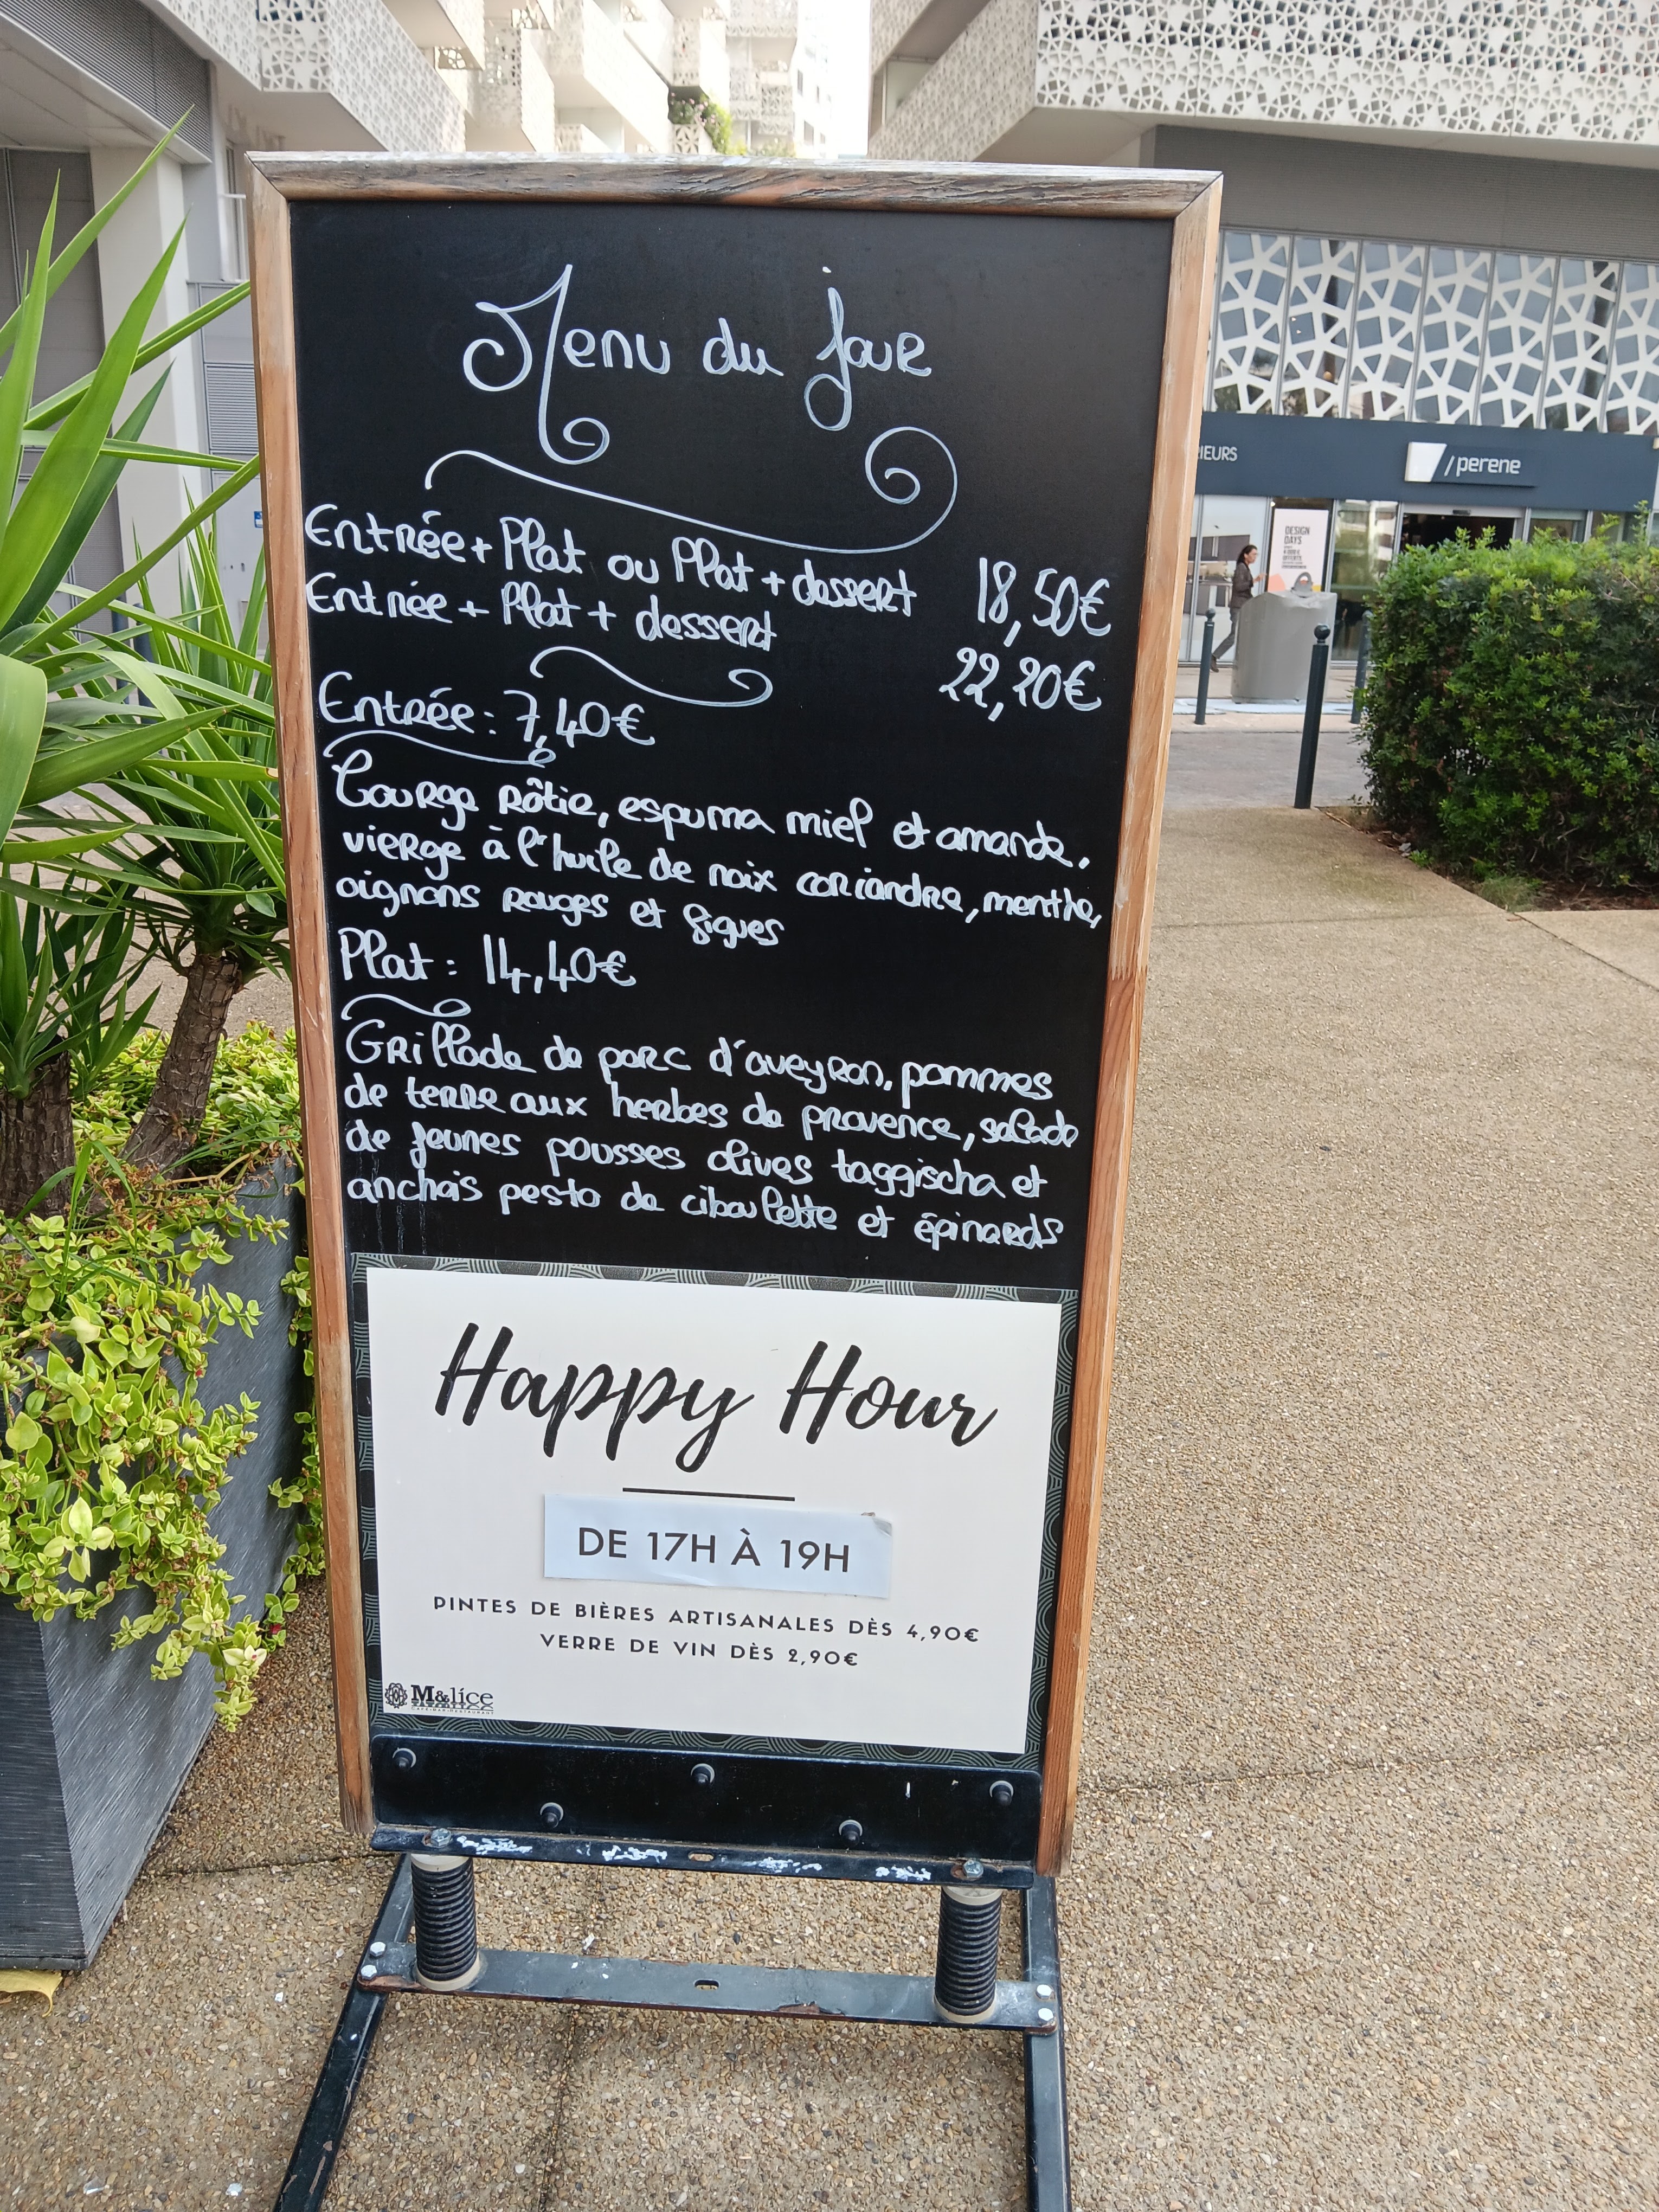 Menu du jour
Entrée + Plat ou Plat + dessert 18,50€
Entrée + Plat + dessert 22,20€
Entrée : 7,40€
Courge rôtie, espuma miel et amande.
vierge à l'huile de noix coriandre, menthe,
oignons rouges et figues
Plat : 14,40€
Grillade de porc d'aveyron, pommes
de terre aux herbes de provence, salade
de jeunes pousses olives taggischa et
anchois pesto de ciboulette et épinards
Happy Hour
DE 17H À 19H
PINTES DE BIÈRES ARTISANALES DÈS 4,90€
VERRE DE VIN DÈS 2,90€
M&lice
CAFE·BAR·RESTAURANT
RIEURS
/perene
DESIGN
DAYS